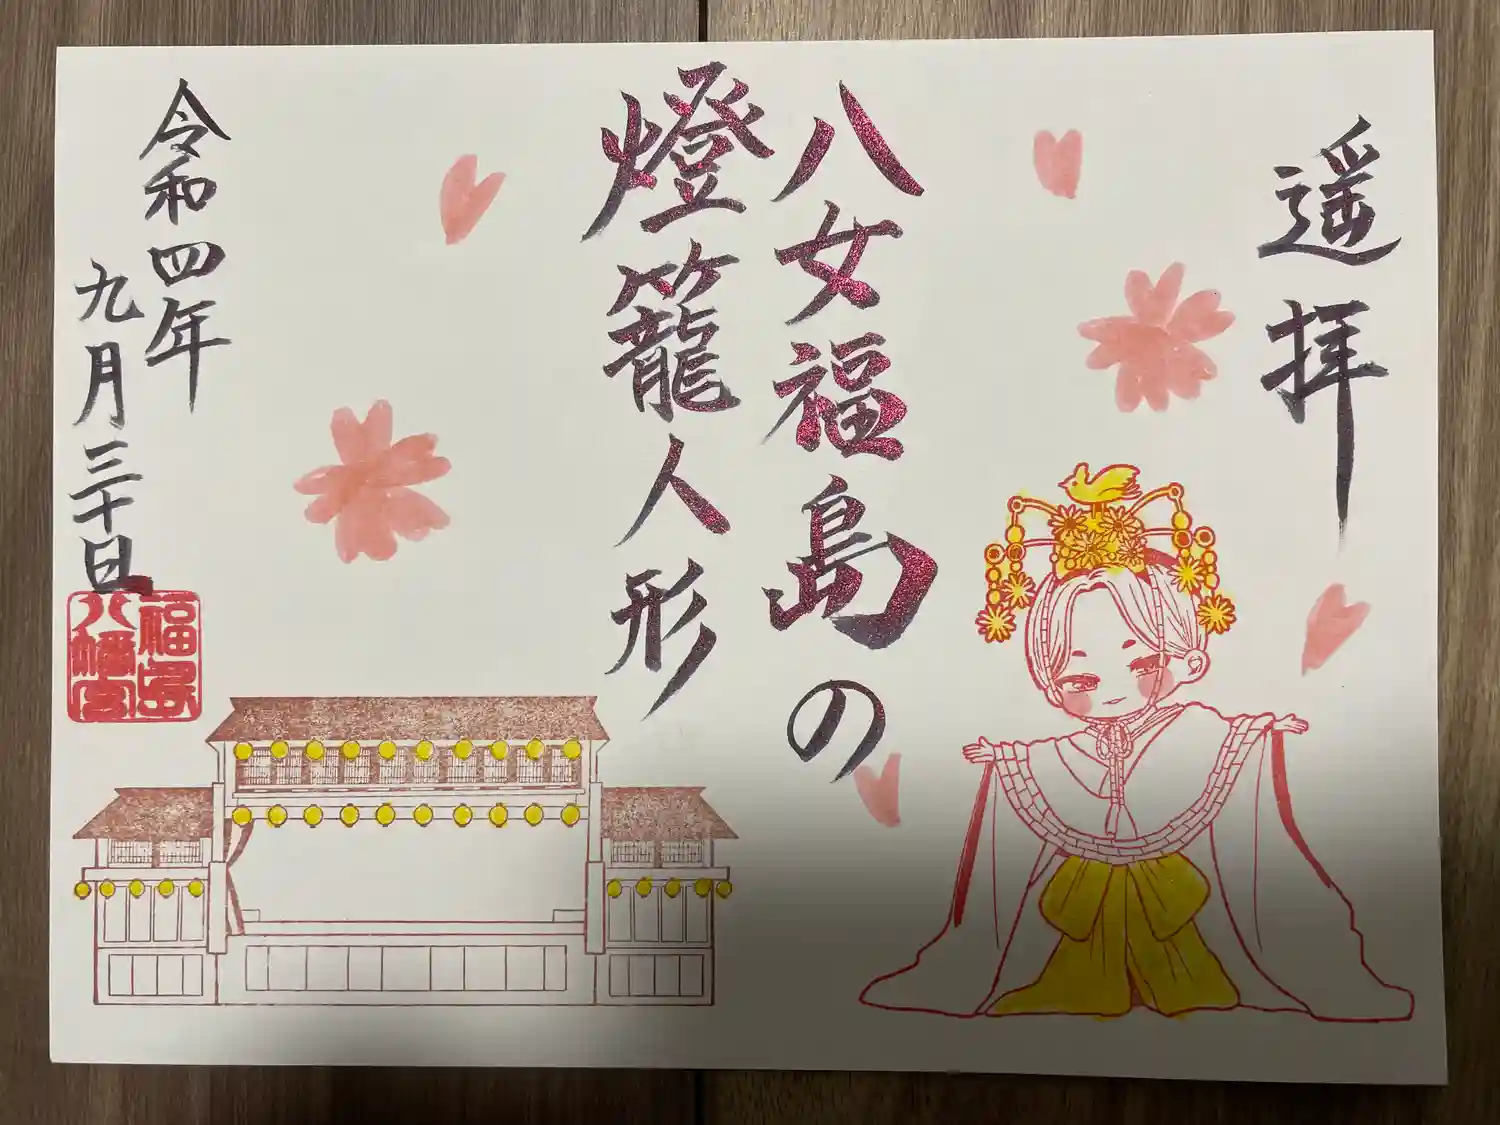 遥拝
八女福島の
燈籠人形
令和四年
九月三十日
福島
八幡宮